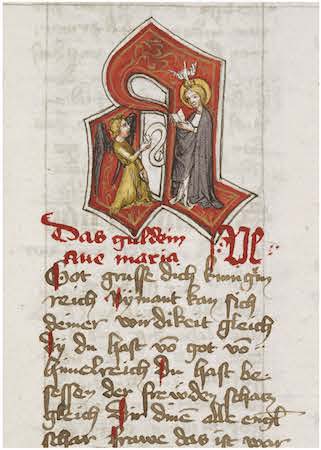 Das guldein VE
ave maria
Got grusse dich kunigin
reich Nymant kan sich
deiner wirdikeit gleich
Dy du hast vō got vō
himelreich Du hast be
sessen der frewden schatz
gleich Dir dinē alle engl
schar Frawe das ist war